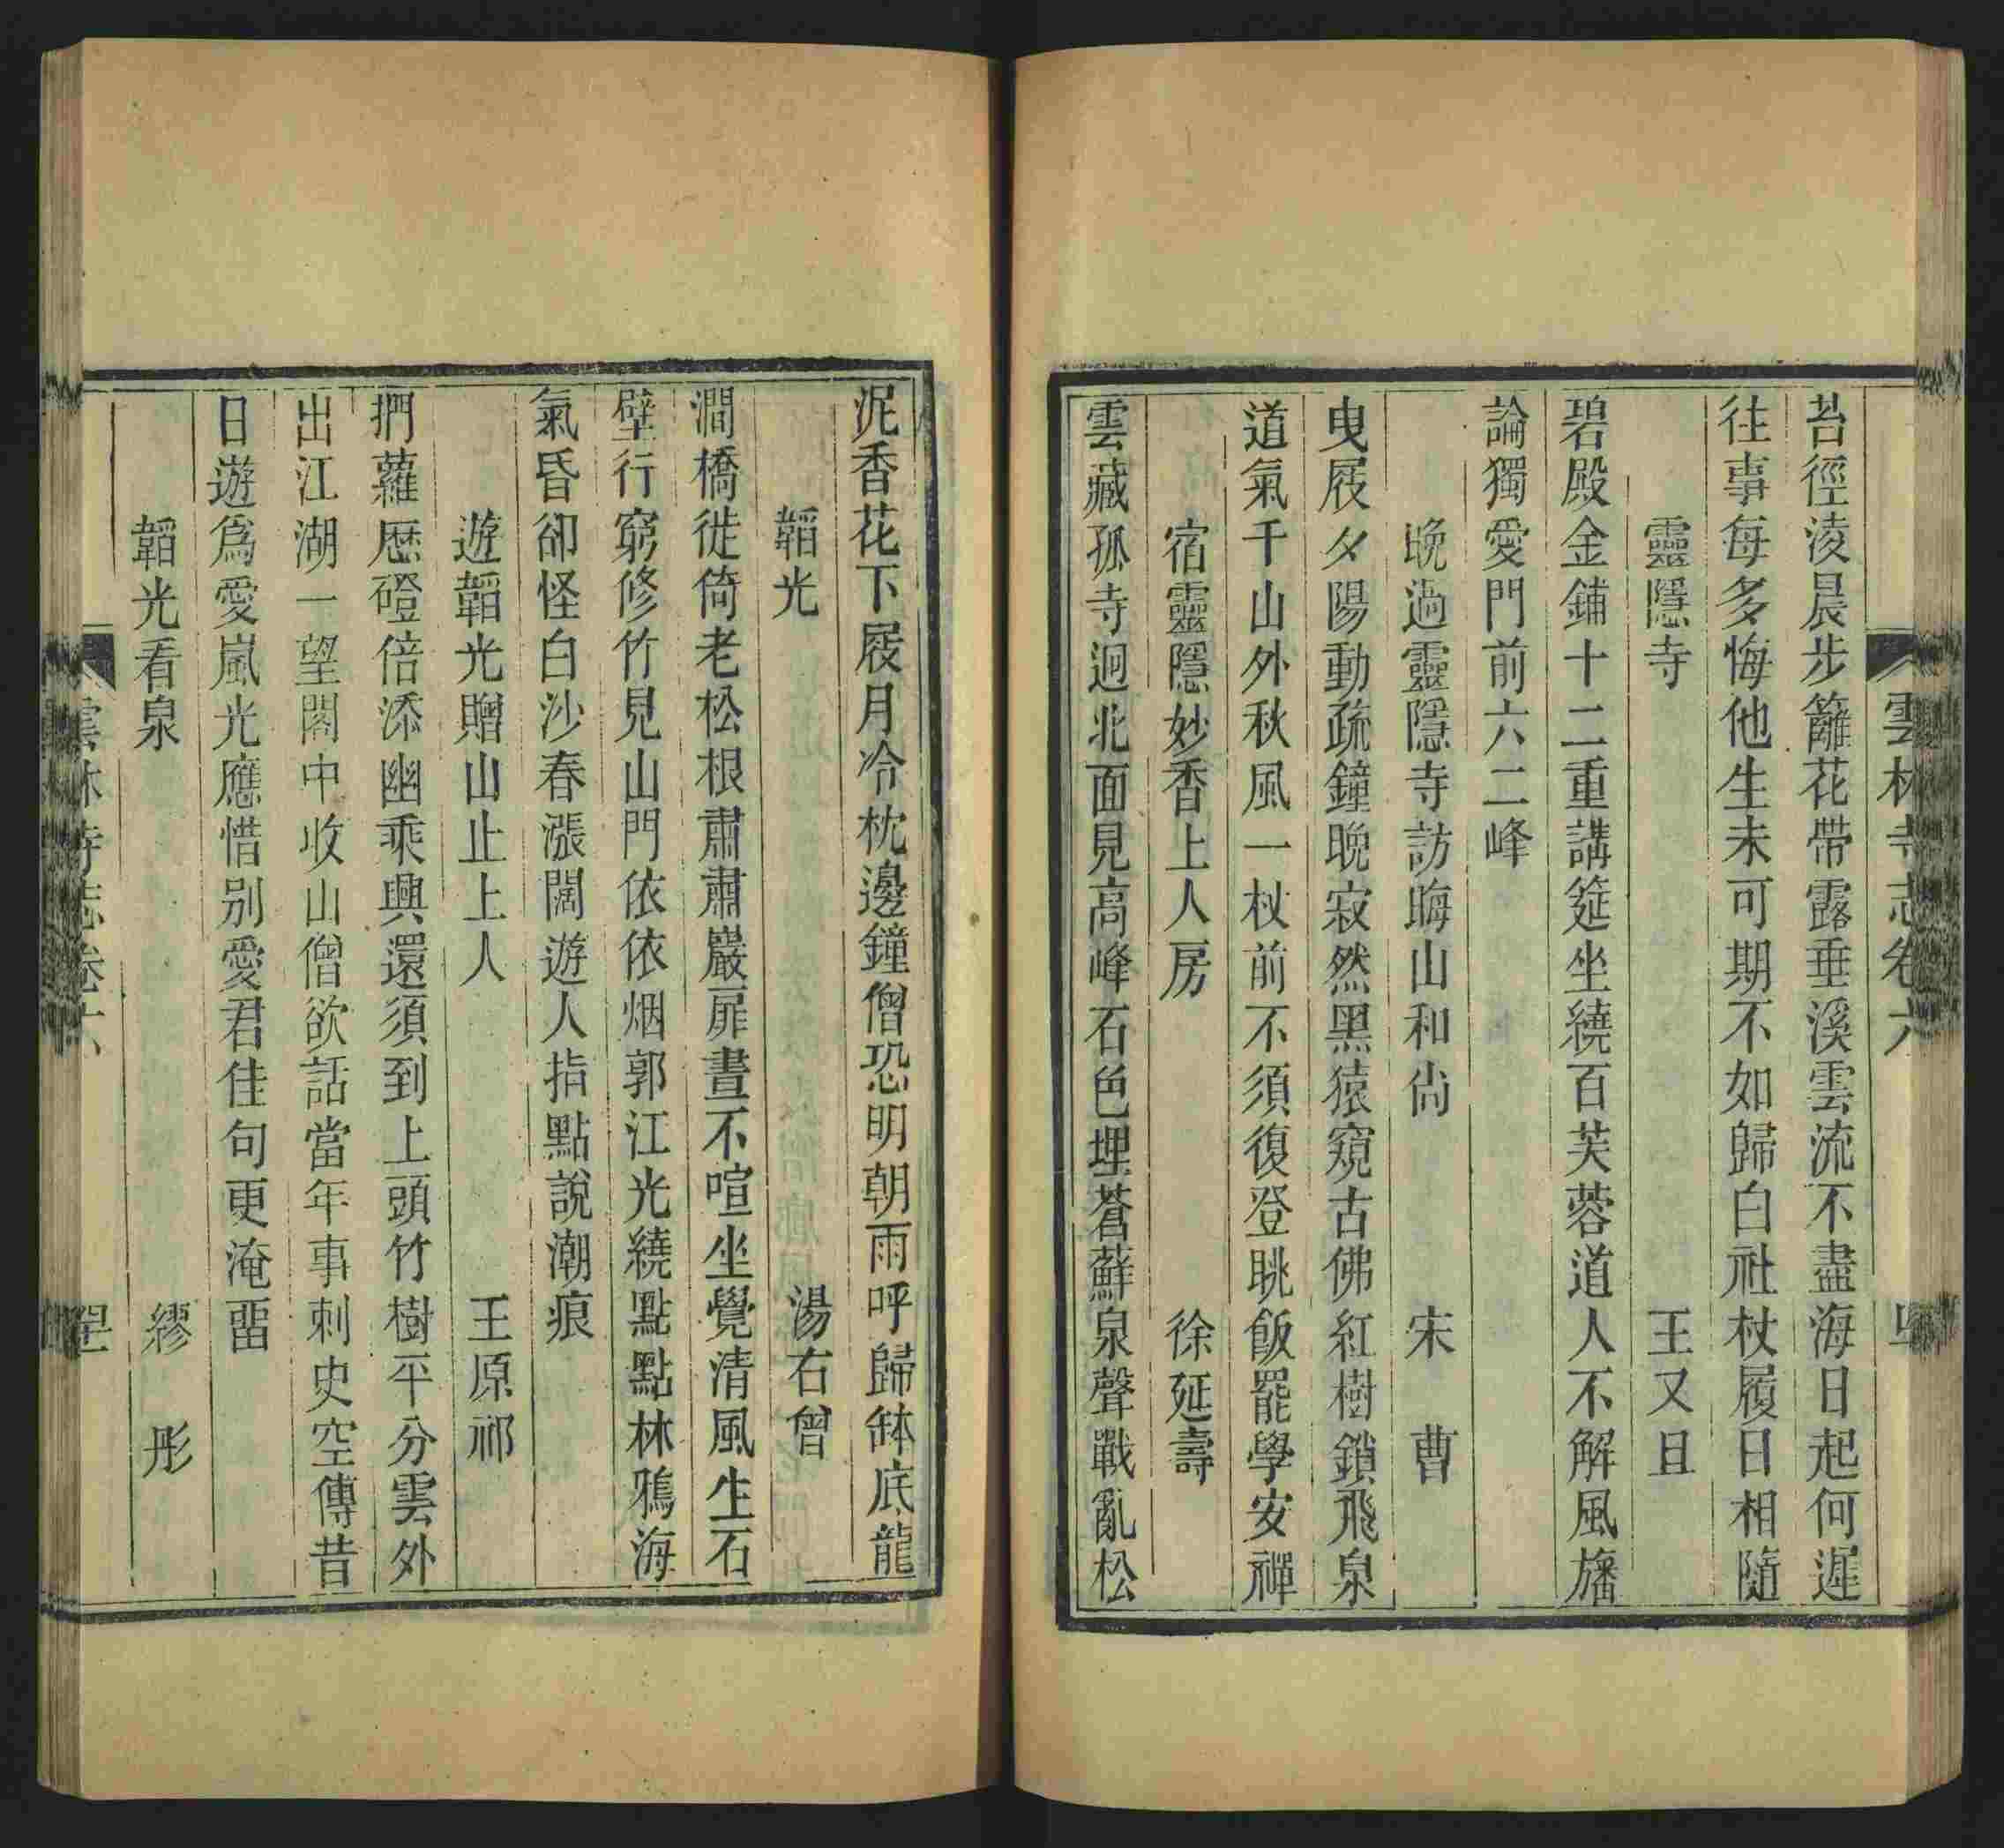 雲林寺志卷六
苔徑淩晨步籬花帶露垂溪雲流不盡海日起何遲
往事每多悔他生未可期不如歸白社杖履日相隨
靈隱寺 王又旦
碧殿金鋪十二重講筵坐繞百芙蓉道人不解風旛
論獨愛門前六二峰
晚過靈隱寺訪晦山和尙 宋曹
曳屐夕陽動疏鐘晚寂然黑猿窺古佛紅樹鎖飛泉
道氣千山外秋風一杖前不須復登眺飯罷學安禪
宿靈隱妙香上人房 徐延壽
雲藏孤寺迥北面見高峰石色埋蒼蘚泉聲戰亂松
泥香花下屐月冷枕邊鐘僧恐明朝雨呼歸缽底龍
韜光 湯右曾
澗橋徙倚老松根肅肅巖扉晝不喧坐覺清風生石
壁行窮修竹見山門依依烟郭江光繞點點林鴉海
氣昏卻怪白沙春漲闊遊人指點說潮痕
遊韜光贈山止上人 王原祁
捫蘿歷磴倍添幽乘興還須到上頭竹樹平分雲外
出江湖一望閣中收山僧欲話當年事刺史空傳昔
日遊爲愛嵐光應惜别愛君佳句更淹畱
韜光看泉 繆彤
雲林寺志卷六